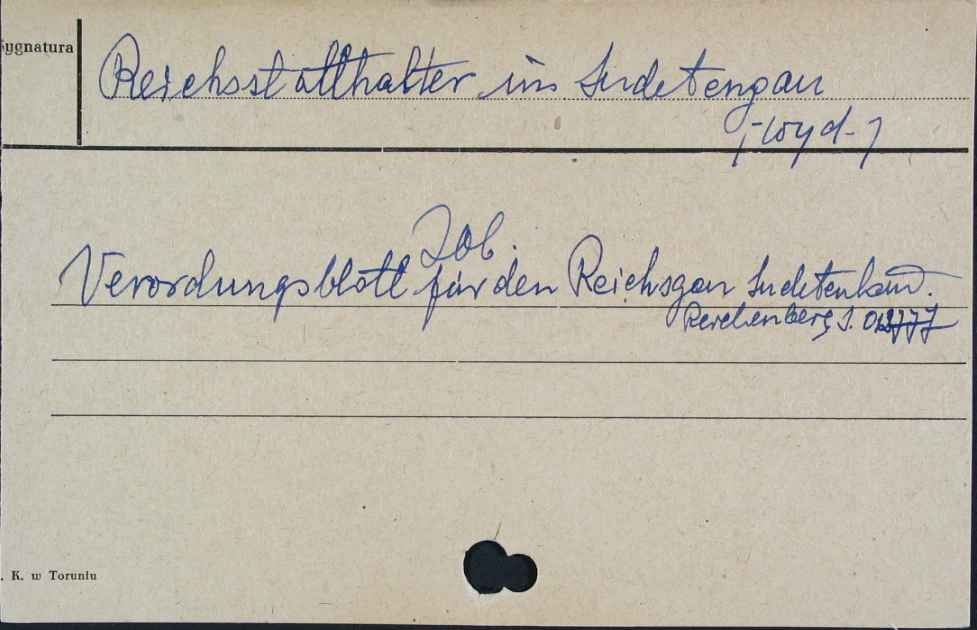 Sygnatura
Reichsstatthalter im Sudetengau
[-wyd-]
Zob.
Verordungsblatt für den Reichsgau Sudetenland.
Reichenberg
. K. w Toruniu